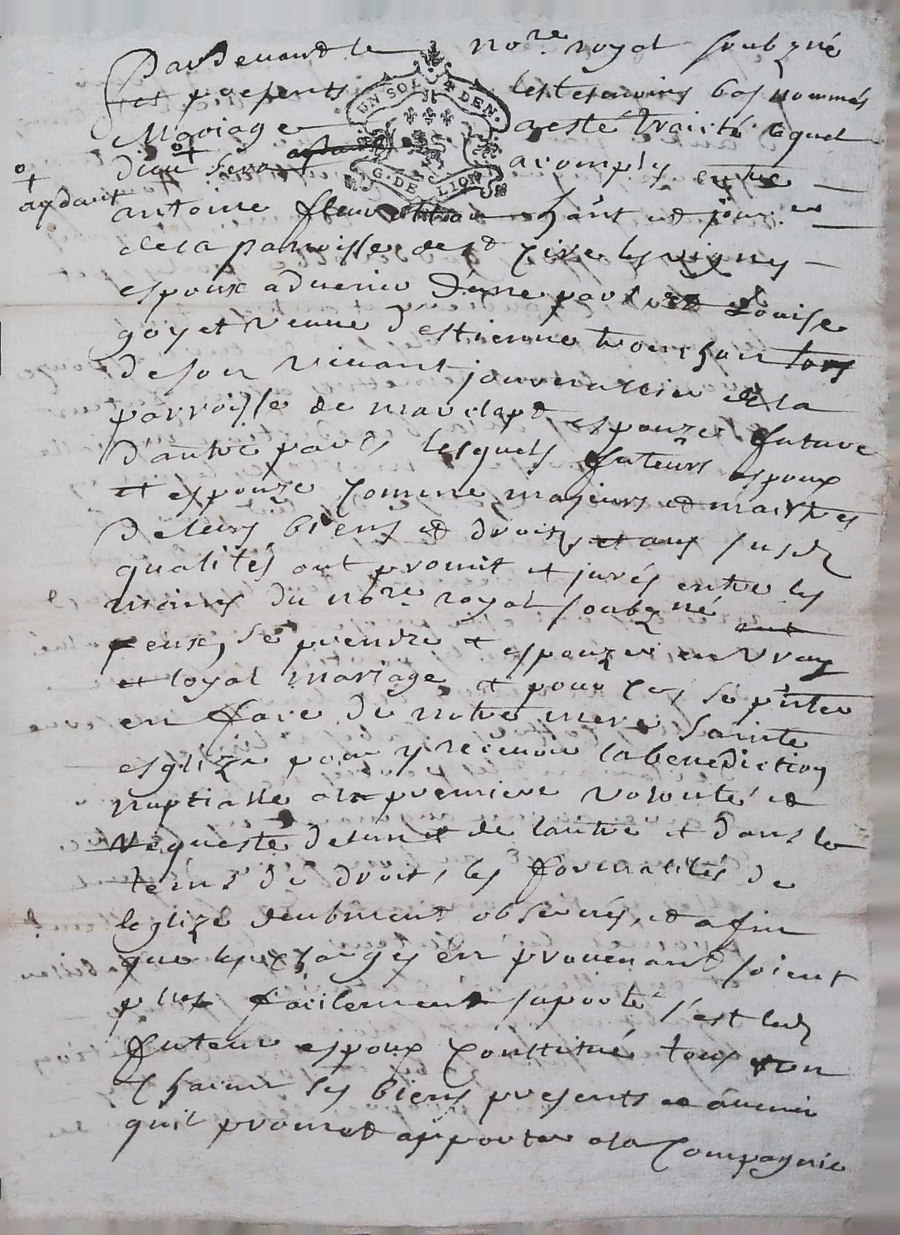 Pardevant le no.re royal soubz.né
et presents les tesmoins bas nommés
UN SOL DEN.
G. DE LION
Mariage a esté traité lequel
dieu sera accomply entre
aydant
antoine hânt et
de la parroisse de s.t les vignes
espoux advenir d'une part et Louise
goyet veuve d'estienne tronchon
de son vivant de la
parroisse de espouze future
d'autre part lesquels futurs espoux
et espouze comme majeurs et maistres
de leurs biens et droits et aux susd.
qualités ont promit et jurés entre les
mains du no.re royal soubz.né
se prendre et espouzer en vray
et loyal mariage et pour ces se p.nter
en face de nostre mere sainte
esglize pour y recevoir la benediction
nuptialle a la premiere volonté et
requeste de lun et de lautre et dans le
tems de droit, les formalités de
leglize deubment observés, et afin
que les charges en provenant soient
plus facilement suporté s'est led.
futeur espoux constitué tous
chacun ses biens presents et avenir
quil promet apporter a la compagnie